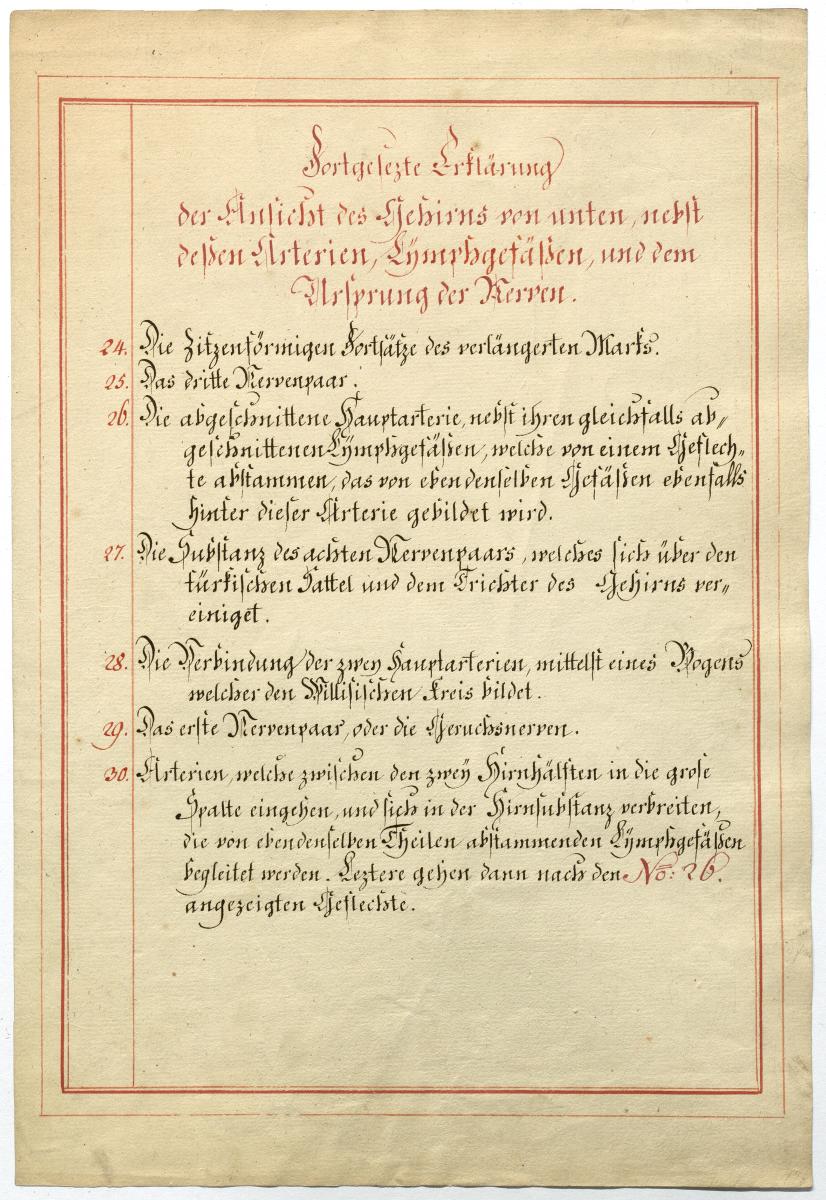 Fortgesezte Erklärung
der Ansicht des Gehirns von unten, nebst
deßen Arterien, Lÿmphgefäßen, und dem
Ursprung der Nerven.
24. Die Zitzenförmigen Fortsätze des verlängerten Marks.
25. Das dritte Nervenpaar.
26. Die abgeschnittene Hauptarterie, nebst ihren gleichfalls ab„
geschnittenen Lÿmphgefäßen, welche von einem Geflech„
te abstammen, das von ebendenselben Gefäßen ebenfalls
hinter dieser Arterie gebildet wird.
27. Die Substanz des achten Nervenpaars, welches sich über den
türkischen Sattel und dem Trichter des Gehirns ver„
einiget.
28. Die Verbindung der zweÿ Hauptarterien, mittelst eines Bogens
welcher den Willisischen Kreis bildet.
29. Das erste Nervenpaar, oder die Geruchsnerven.
30. Arterien, welche zwischen den zweÿ Hirnhälften in die grose
Spalte eingehen, und sich in der Hirnsubstanz verbreiten,
die von ebendenselben Theilen abstammenden Lÿmphgefäßen
begleitet werden. Leztere gehen dann nach den No: 26.
angezeigten Geflechte.